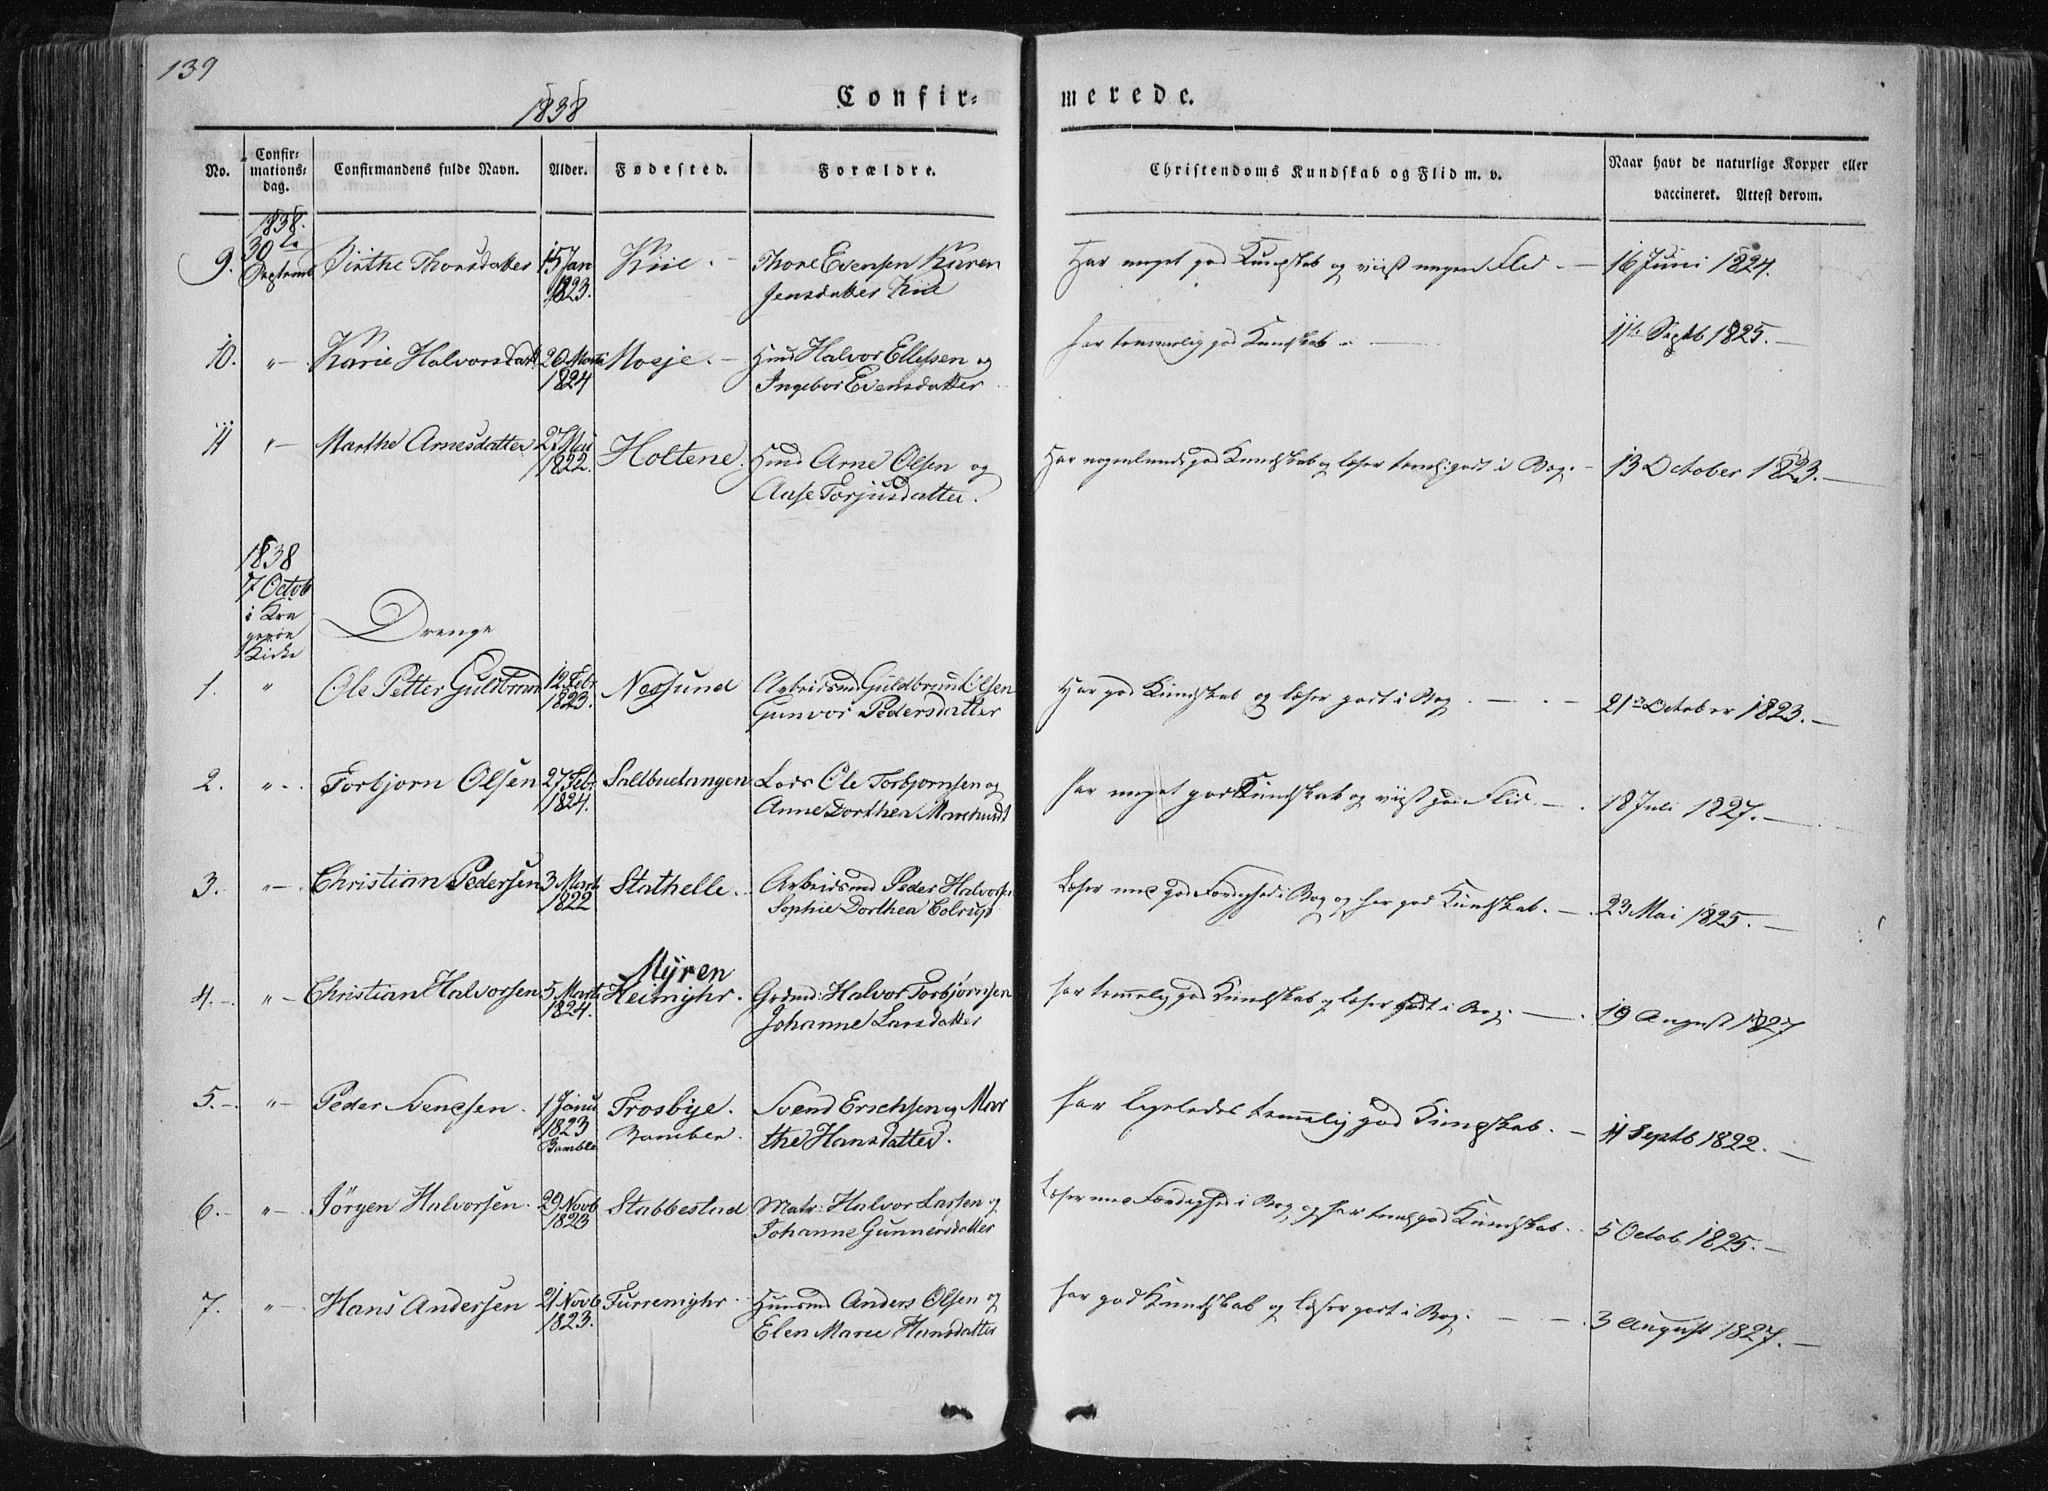 139
1838
Confir=
merede.
No.
Confir-
mations-
dag.
Confirmandens fulde Navn.
Alder.
Fødested.
Forældre.
Christendoms Kundskab og Flid m. v.
Naar havt de naturlige Kopper eller
vaccineret. Attest derom.
1838.
30te
Septemb
9. Birthe Thorsdatter 15 Jan Kiil. Thore Evensen Karen Har meget god Kundskab og viist megen Flid. 16 Juni 1824.
1823. Jensdatter Kiil
10. "- Karie Halvorsdatt 20 Marts Moeje. Hmd Halvor Ellefsen og har temmelig god Kundskab 11te Septb 1825.
1824 Ingebor Evensdatter
11 "- Marthe Arnesdatter 27 Mai Holtene. Hmd Arne Olsen og Har nogenlunde god Kundskab og læser temel: godt i Bog. 13 October 1823.
1822. Aase Torjusdatter.
1838
7 Octob
i Kra
gerøe
Kirke
Drenge
1. " Ole Petter Guldbran 12 Febr Neesund Arbeidsmd Guldbrand Olsen Har god Kundskab og læser godt i Bog. 21de October 1823.
1823. Gunvor Pedersdatter
2. "- Torbjorn Olsen 27 Febr Saltbuetangen Lods Ole Torbjornsen og har meget god Kundskab og viist god Flid. 18 Juli 1827.
1824. Anne Dorthea Marchundt
3. "- Christian Pedersen 3 Marts Stathelle. Arbeidsmd Peder Halvorsen Læser med god Færdighed i Bog og har god Kundskab. 23 Mai 1825.
1822 Sophie Dorthea
Myren
4. "- Christian Halvorsen 5 Marts Heimyhr. Grdmd: Halvor Torbjørnsen har temmelig god Kundskab og læser godt i Bog. 19 August 1827
1824. Johanne Larsdatter
5. "- Peder Svendsen. 1 Janu Trosbye. Svend Erichsen og Mar har ligeledes temmelig god Kundskab. 11 Septb 1822.
1823 Bamble. the Hansdatter.
Bamble
6. "- Jörgen Halvorsen. 29 Novb Stabbestad Matr: Halvor Larsen og Læser med Færdighed i Bog og har temel: god Kundskab. 5 Octob 1825.
1823 Johanne Gunnersdatter
7. "- Hans Andersen 21 Novb Furremyhr Huusmd Anders Olsen og har god Kundskab og læser godt i Bog. 3 August 1827.
1823. Elen Marie Hansdatter